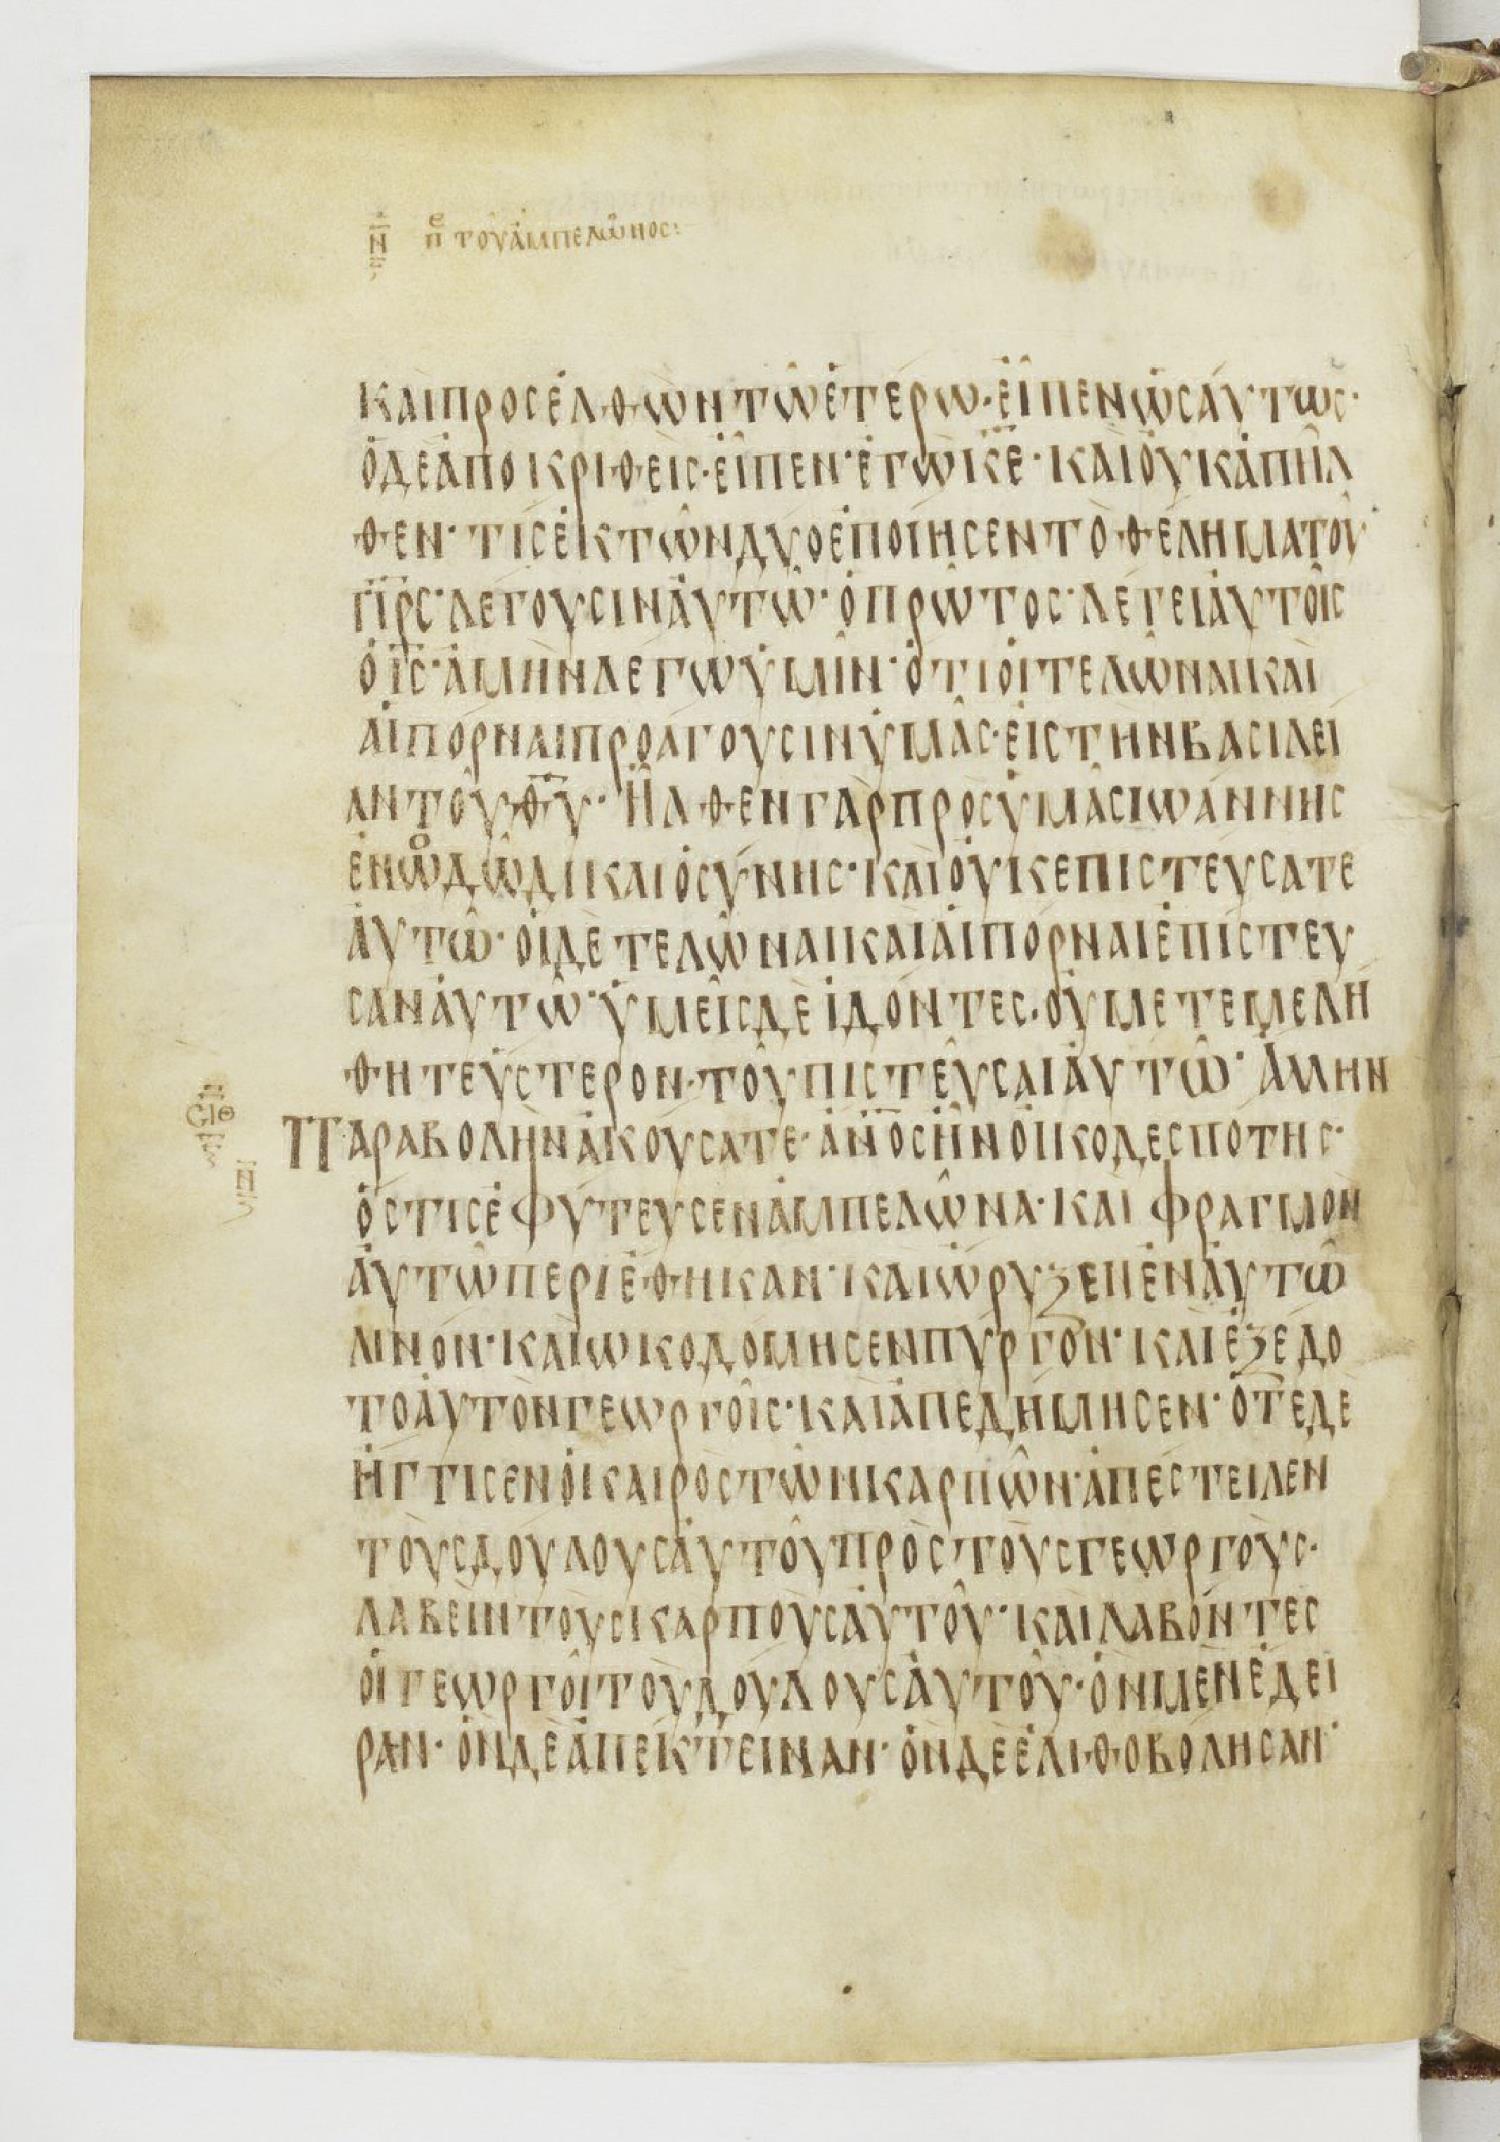 Ν̄ Π̄ε ΤΟΥ ἈΜΠΕΛῶΝΟΣ:
ΚΑΙΠΡΟΣΕΛΘΩΝΤῶἙΤΕΡΩ·ΕἶΠΕΝὩΣΑΥΤΩΣ·
ὉΔΕἈΠΟΚΡΙΘΕΙΣ·ΕἶΠΕΝ·ἘΓΩΚ̅Ε̅·ΚΑΙΟὐΚἈΠΗΛ
ΘΕΝ·ΤΙΣἘΚΤῶΝΔΥΟἘΠΟΙΗΣΕΝΤΟΘΕΛΗΜΑΤΟῦ
Π̅Ρ̅Σ̅·ΛΕΓΟΥΣΙΝΑὐΤῶ·ὉΠΡῶΤΟΣ·ΛΕΓΕΙΑὐΤΟῖΣ
ὉΙ̅Σ̅·ἈΜΗΝΛΕΓΩὙΜῖΝ·ὍΤΙΟἱΤΕΛῶΝΑΙΚΑΙ
ΑἱΠΟΡΝΑΙΠΡΟΑΓΟΥΣΙΝὙΜᾶΣ·ΕἰΣΤΗΝΒΑΣΙΛΕΙ
ΑΝΤΟῦΘ̅Υ̅·ἮΛΘΕΝΓΑΡΠΡΟΣὙΜᾶΣΙΩΑΝΝΗΣ
ἘΝὉΔῶΔΙΚΑΙΟΣΥΝΗΣ·ΚΑΙΟὐΚΕΠΙΣΤΕΥΣΑΤΕ
ΑὐΤῶ·ΟἱΔΕΤΕΛῶΝΑΙΚΑΙΑἱΠΟΡΝΑΙἘΠΙΣΤΕΥ
ΣΑΝΑὐΤῶ·ὙΜΕῖΣΔΕἸΔΟΝΤΕΣ·ΟὐΜΕΤΕΜΕΛΗ
ΘΗΤΕὙΣΤΕΡΟΝ·ΤΟῦΠΙΣΤΕῦΣΑΙΑὐΤῶ·ἈΜΗΝ
ΣΙΘ ΠΑΡΑΒΟΛΗΝἈΚΟΥΣΑΤΕ·Α̅Ν̅Ο̅Σ̅ἮΝΟἰΚΟΔΕΣΠΟΤΗΣ·
Ν̄ ὍΣΤΙΣἘΦΥΤΕΥΣΕΝἈΜΠΕΛῶΝΑ·ΚΑΙΦΡΑΓΜΟΝ
ΑὐΤῶΠΕΡΙἘΘΗΚΑΝ·ΚΑΙὨΡΥΞΕΝἘΝΑὐΤῶ
ΛΙΝΟΝ·ΚΑΙΩΚΟΔΟΜΗΣΕΝΠΥΡΓΟΝ·ΚΑΙἘΞΕΔΟ
ΤΟΑὐΤΟΝΓΕΩΡΓΟῖΣ·ΚΑΙἈΠΕΔΗΜΗΣΕΝ·ὍΤΕΔΕ
ἨΓΓΙΣΕΝὉΚΑΙΡΟΣΤῶΝΚΑΡΠῶΝ·ἈΠΕΣΤΕΙΛΕΝ
ΤΟΥΣΔΟΥΛΟΥΣΑὐΤΟῦΠΡΟΣΤΟΥΣΓΕΩΡΓΟΥΣ·
ΛΑΒΕΙΝΤΟΥΣΚΑΡΠΟΥΣΑὐΤΟῦ·ΚΑΙΛΑΒΟΝΤΕΣ
ΟἱΓΕΩΡΓΟΙΤΟΥΔΟΥΛΟΥΣΑὐΤΟῦ·ὉΝΜΕΝἘΔΕΙ
ΡΑΝ·ὉΝΔΕἈΠΕΚΤΕΙΝΑΝ·ὉΝΔΕἘΛΙΘΟΒΟΛΗΣΑΝ·